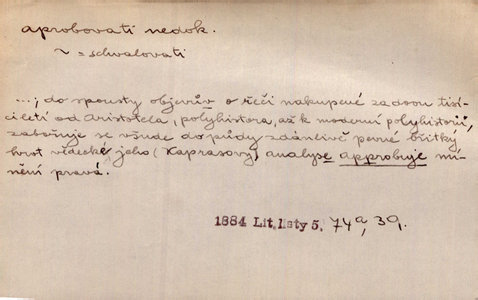 aprobovati nedok.
~ = schvalovati
...; do spousty objevův o řeči nakupené za dvou tisí-
ciletí od Aristotela, polyhistora, až k moderní polyhistorii,
zabořuje se všude do půdy zdánlivě pevné břitký
hrot vědecké jeho (Kaprasovy) analyse approbuje mí-
nění pravá.
1884 Lit. listy 5, 74a, 39.